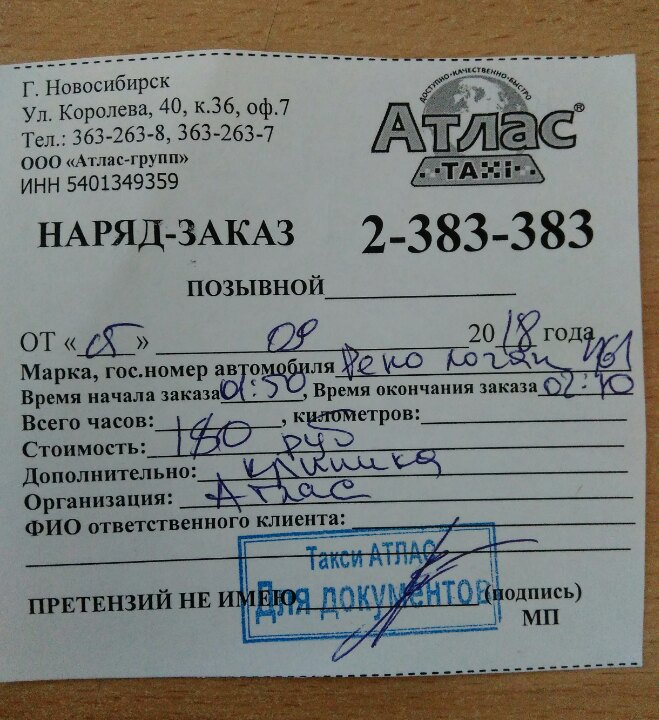 Г. Новосибирск
Ул. Королева, 40, к.36, оф.7
Тел.: 363-263-8, 363-263-7
ООО «Атлас-групп»
ИНН 5401349359
ДОСТУПНО·КАЧЕСТВЕННО·БЫСТРО
Атлас®
ТАХi
НАРЯД-ЗАКАЗ 2-383-383
ПОЗЫВНОЙ
ОТ « » 09 2018 года
Марка, гос.номер автомобиля Рено логан 461
Время начала заказа 01:50, Время окончания заказа 02:10
Всего часов: , километров:
Стоимость: 180 руб
Дополнительно: клиника
Организация: Атлас
ФИО ответственного клиента:
Такси АТЛАС
Для документов
ПРЕТЕНЗИЙ НЕ ИМЕЮ (подпись)
МП